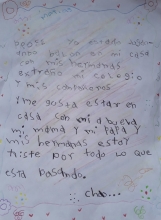 yo estado
en mi casa
con mis hermanas
extraño mi colegio
y mis compañeros
me gusta estar en
casa con mi abuela
mi mama y mi papa y
mis hermanas estoy
triste por todo lo que
esta pasando.
chao...